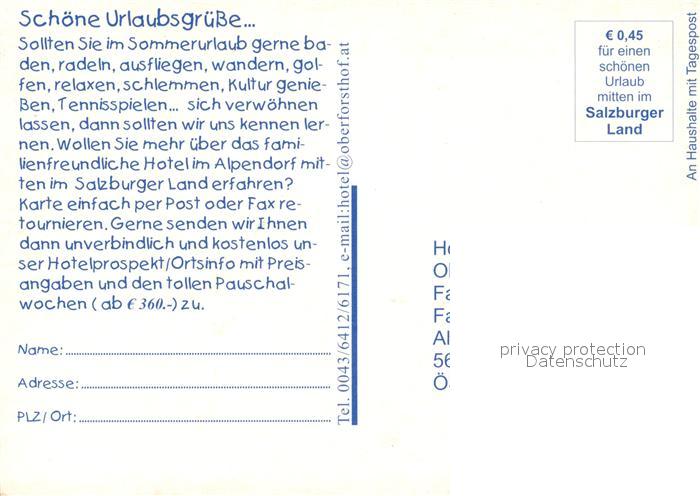 Schöne Urlaubsgrüße...
Sollten Sie im Sommerurlaub gerne ba-
den, radeln, ausfliegen, wandern, gol-
fen, relaxen, schlemmen, Kultur genie-
ßen, Tennisspielen... sich verwöhnen
lassen, dann sollten wir uns kennen ler-
nen. Wollen Sie mehr über das fami-
lienfreundliche Hotel im Alpendorf mit-
ten im Salzburger Land erfahren?
Karte einfach per Post oder Fax re-
tournieren. Gerne senden wir Ihnen
dann unverbindlich und kostenlos un-
ser Hotelprospekt/Ortsinfo mit Preis-
angaben und den tollen Pauschal-
wochen ( ab € 360.-) zu.
Name:
Adresse:
PLZ/Ort:
Tel. 0043/6412/6171, e-mail:hotel@oberforsthof.at
€ 0,45
für einen
schönen
Urlaub
mitten im
Salzburger
Land
An Haushalte mit Tagespost
56
privacy protection
Datenschutz